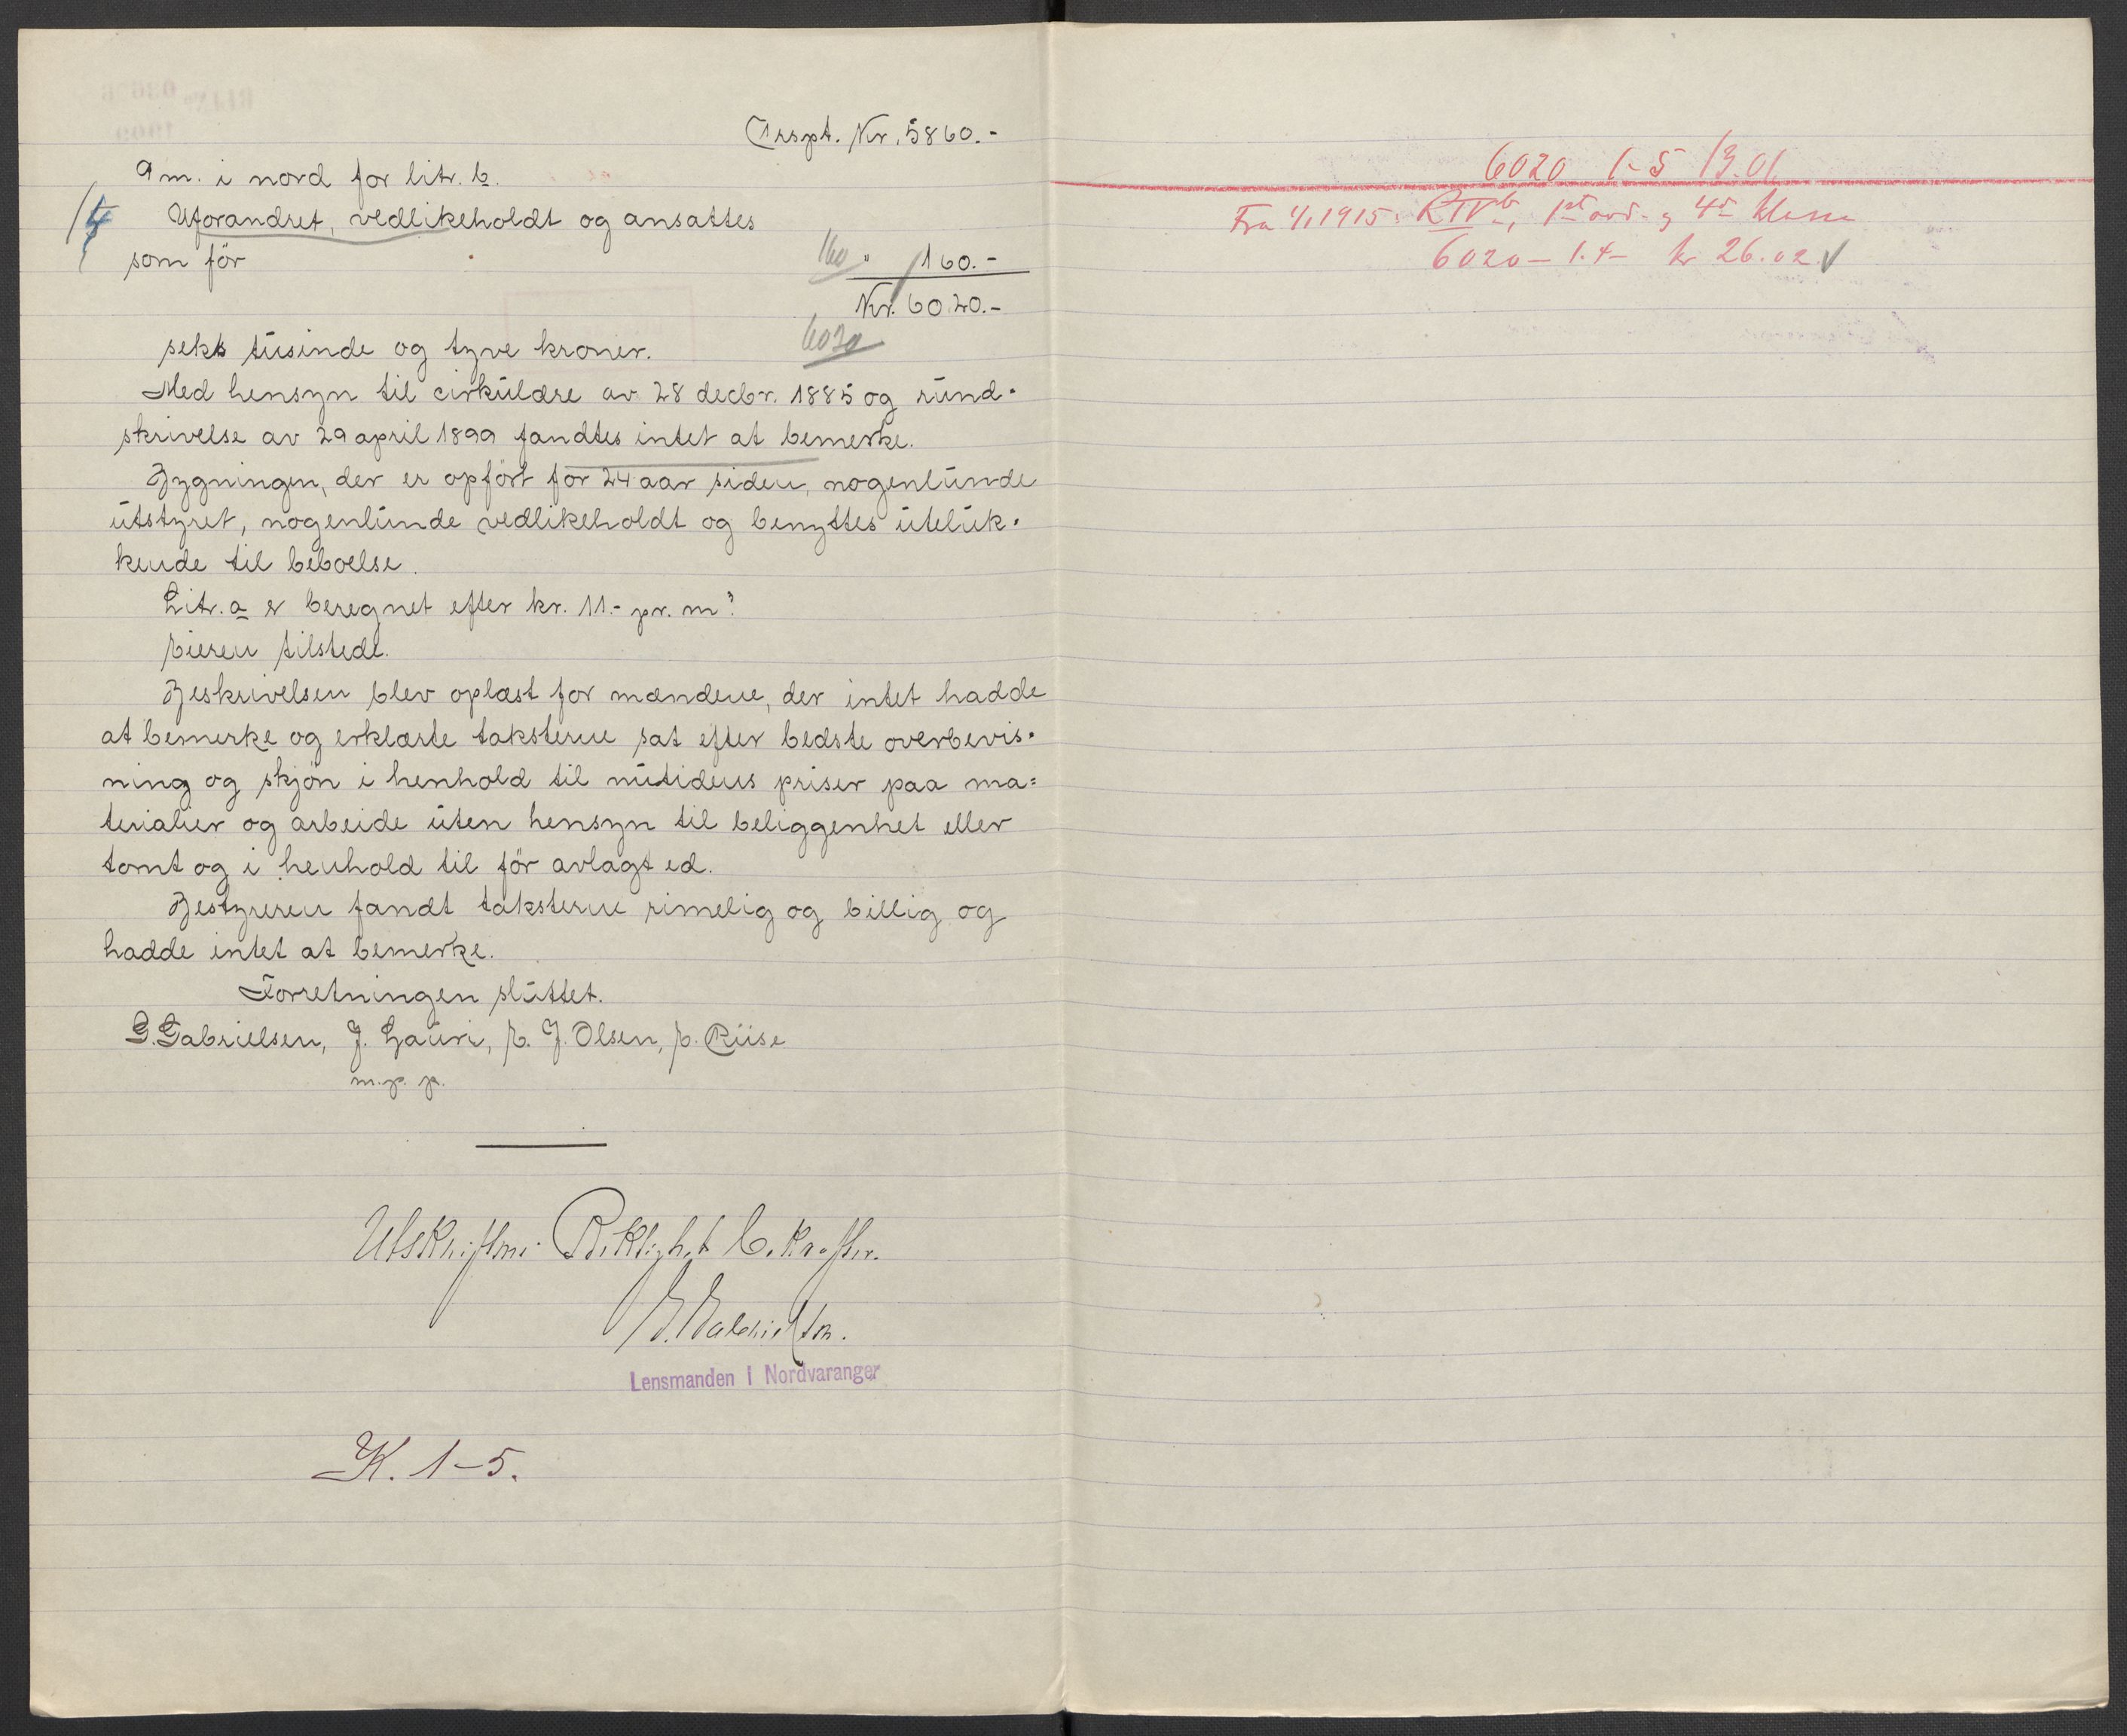 Trspt. Kr. 5860.-
9 m. i nord for litr. b.
Uforandret, vedlikeholdt og ansattes
som før 160 " 160.-
Kr. 6020.-
seks tusinde og tyve kroner. 6020
Med hensyn til cirkulære av 28 decbr. 1885 og rund-
skrivelse av 29 april 1899 fandtes intet at bemerke.
Bygningen, der er opført for 24 aar siden, nogenlunde
utstyret, nogenlunde vedlikeholdt og benyttes uteluk-
kende til beboelse.
Litr. a er beregnet efter kr. 11.- pr. m³.
Eieren tilstede.
Beskrivelsen blev oplæst for mændene, der intet hadde
at bemerke og erklærte taksterne sat efter bedste overbevis-
ning og skjøn i henhold til nutidens priser paa ma=
terialier og arbeide uten hensyn til beliggenhet eller
tomt og i henhold til før avlagt ed.
Bestyreren fandt taksterne rimelig og billig og
hadde intet at bemerke.
Forretningen sluttet.
G. Gabrielsen, J. Lauri, E. J. Olsen, E. Riise
m. p. p.
Utskriftens Riktighet bekræftes.
G. Gabrielsen.
Lensmanden i Nordvaranger
K. 1-5.
6020 1-5 13.01
Fra 1/1 1915: R IV b, 1st avd. og 4de klasse
6020 - 1.4 - kr 26.02